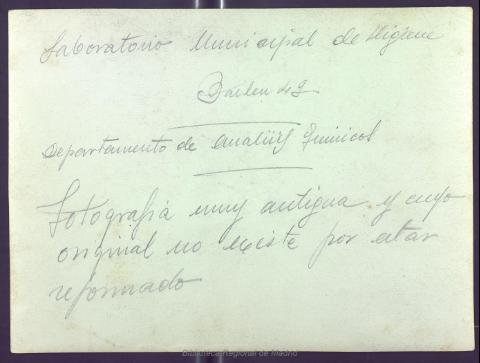 Laboratorio Municipal de Higiene
Bailen 43
Departamento de Analisis Quimicos
Fotografia muy antigua y cuyo
original no existe por estar
reformado
Biblioteca Regional de Madrid